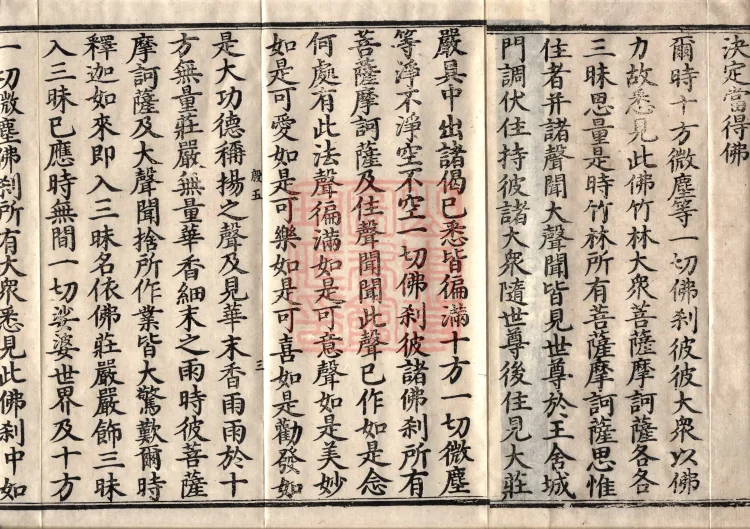 決定當得佛
爾時十方微塵等一切佛刹彼彼大衆以佛
力故悉見此佛竹林大衆菩薩摩訶薩各各
三昧思量是時竹林所有菩薩摩訶薩思惟
住者并諸聲聞大聲聞皆見世尊於王舍城
門調伏住持彼諸大衆隨世尊後住見大莊
嚴具中出諸偈已悉皆徧滿十方一切微塵
等淨不淨空不空一切佛刹彼諸佛刹所有
菩薩摩訶薩及住聲聞聞此聲已作如是念
何處有此法聲徧滿如是可意聲如是美妙
如是可愛如是可樂如是可喜如是勸發如
殷五
三
是大功德稱揚之聲及見華末香雨雨於十
方無量莊嚴無量華香細末之雨時彼菩薩
摩訶薩及大聲聞捨所作業皆大驚歎爾時
釋迦如來即入三昧名依佛莊嚴嚴飾三昧
入三昧已應時無間一切娑婆世界及十方
一切微塵佛刹所有大衆悉見此佛刹中如